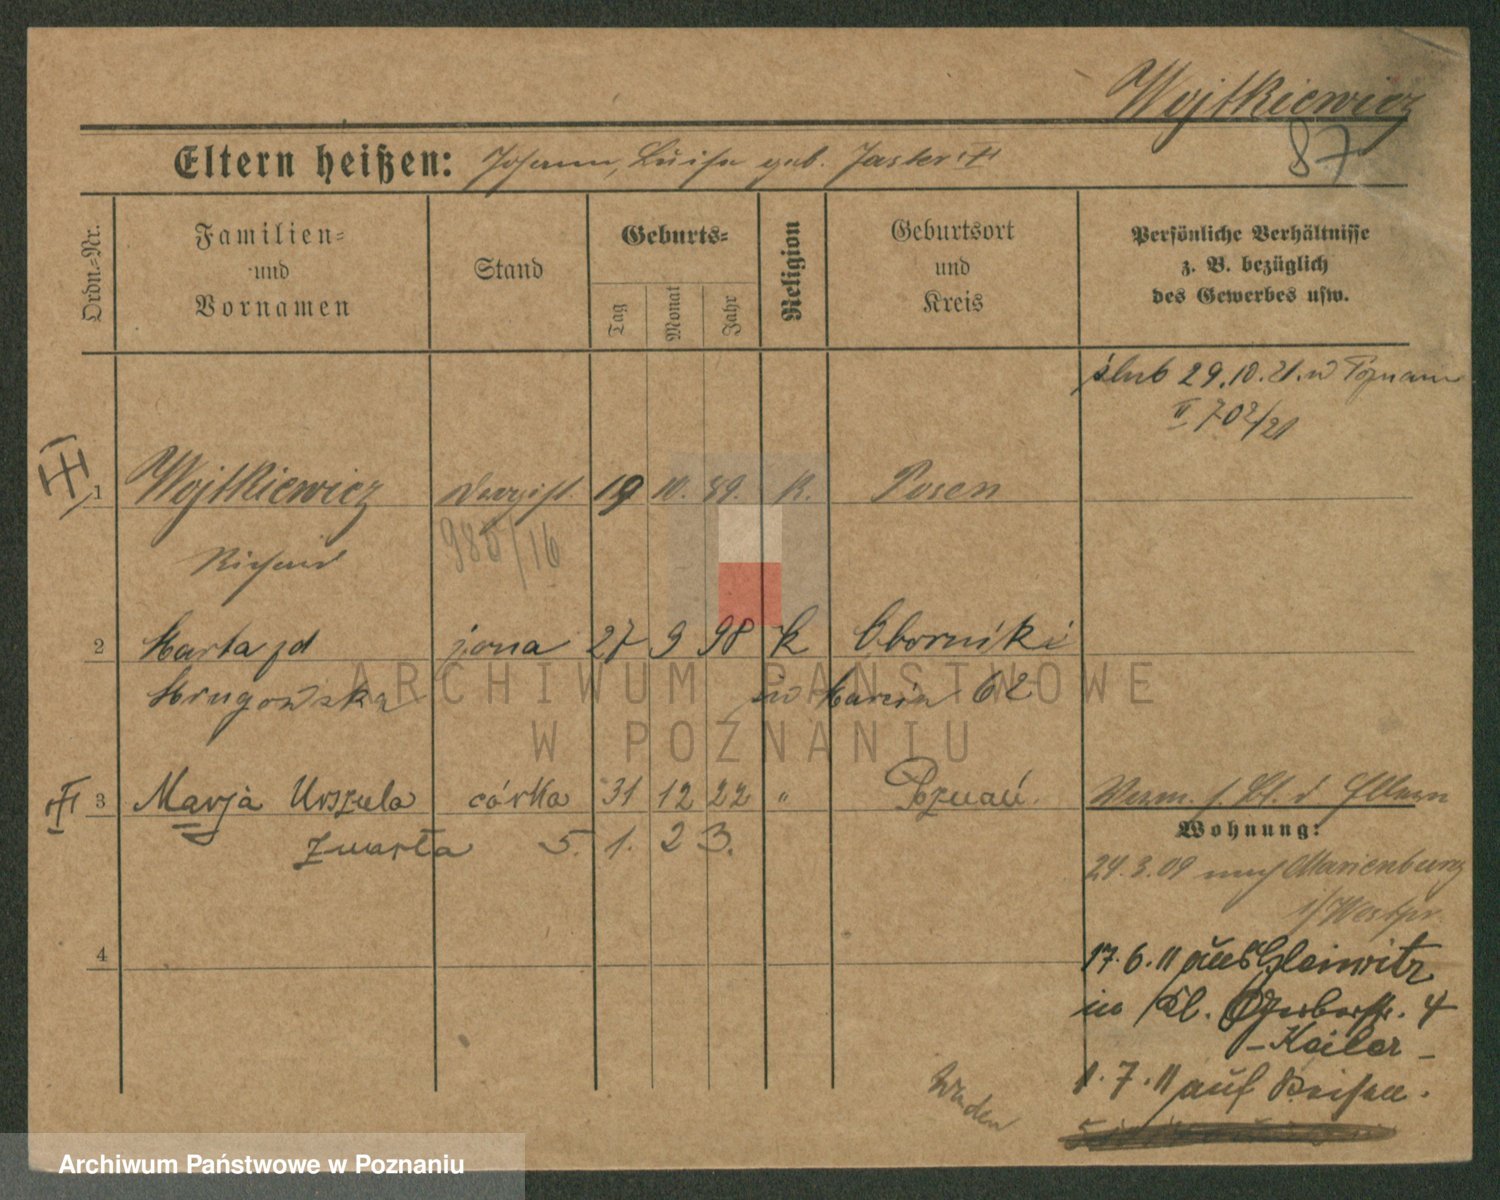 Wojtkiewicz
87
Eltern heißen: Johann, Luise geb.
Ordn.=Nr.
Familien=
und
Vornamen
Stand
Geburts=
Tag
Monat
Jahr
Religion
Geburtsort
und
Kreis
Persönliche Verhältnisse
z. B. bezüglich
des Gewerbes usw.
ślub 29.10.21. w Poznaniu
II 702/21
1 Wojtkiewicz 19 10. 89. K. Posen
Richard 985/16
2 Marta zd żona 27 9 98 K Oborniki
Mrugowska św Marcin 62
3 Marja Urszula córka 31 12 22 " Poznań.
zmarła 5. 1. 23.
Wohnung:
24.3.09 nach Marienburg
i/Westpr.
4
17.6.11 aus Gleiwitz
in Kl. Gerberstr. 4
- Keiler -
1.7.11 auf Reisen.
ARCHIWUM PAŃSTWOWE
W POZNANIU
Archiwum Państwowe w Poznaniu